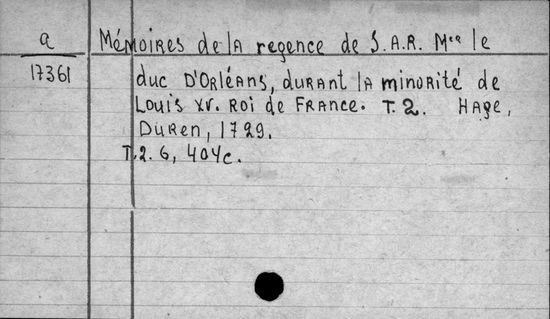 a
17361
Mémoires de la regence de S.A.R. Mgr le
duc D'Orléans, durant la minorité de
Louis XV. Roi de France. T. 2. Haye,
Düren, 1729.
T.2. 6, 404c.